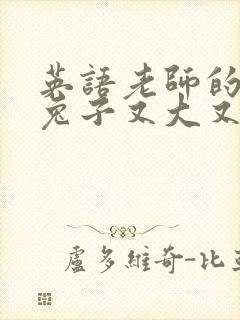 英語老師的
兔子又大又
盧多維奇-比亞